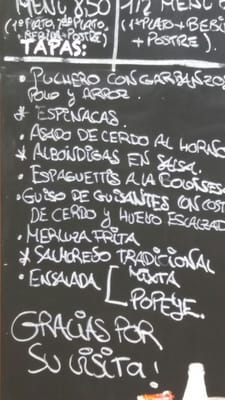 MENÚ 8'50 1/2 MENÚ 6
(1ºPLATO, 2ºPLATO, (1ºPLATO + BEBI
BEBIDA + POSTRE) + POSTRE).
TAPAS:
• PUCHERO CON GARBANZOS
POLLO Y ARROZ.
* ESPINACAS.
• ASADO DE CERDO AL HORNO
* ALBÓNDIGAS EN SALSA.
• ESPAGUETTIS A LA BOLOÑESA
• GUISO DE GUISANTES CON COST
DE CERDO Y HUEVO ESCALFAD
• MERLUZA FRITA
* SALMOREJO TRADICIONAL
• ENSALADA [ MIXTA
POPEYE.
GRACIAS POR
SU VISITA!